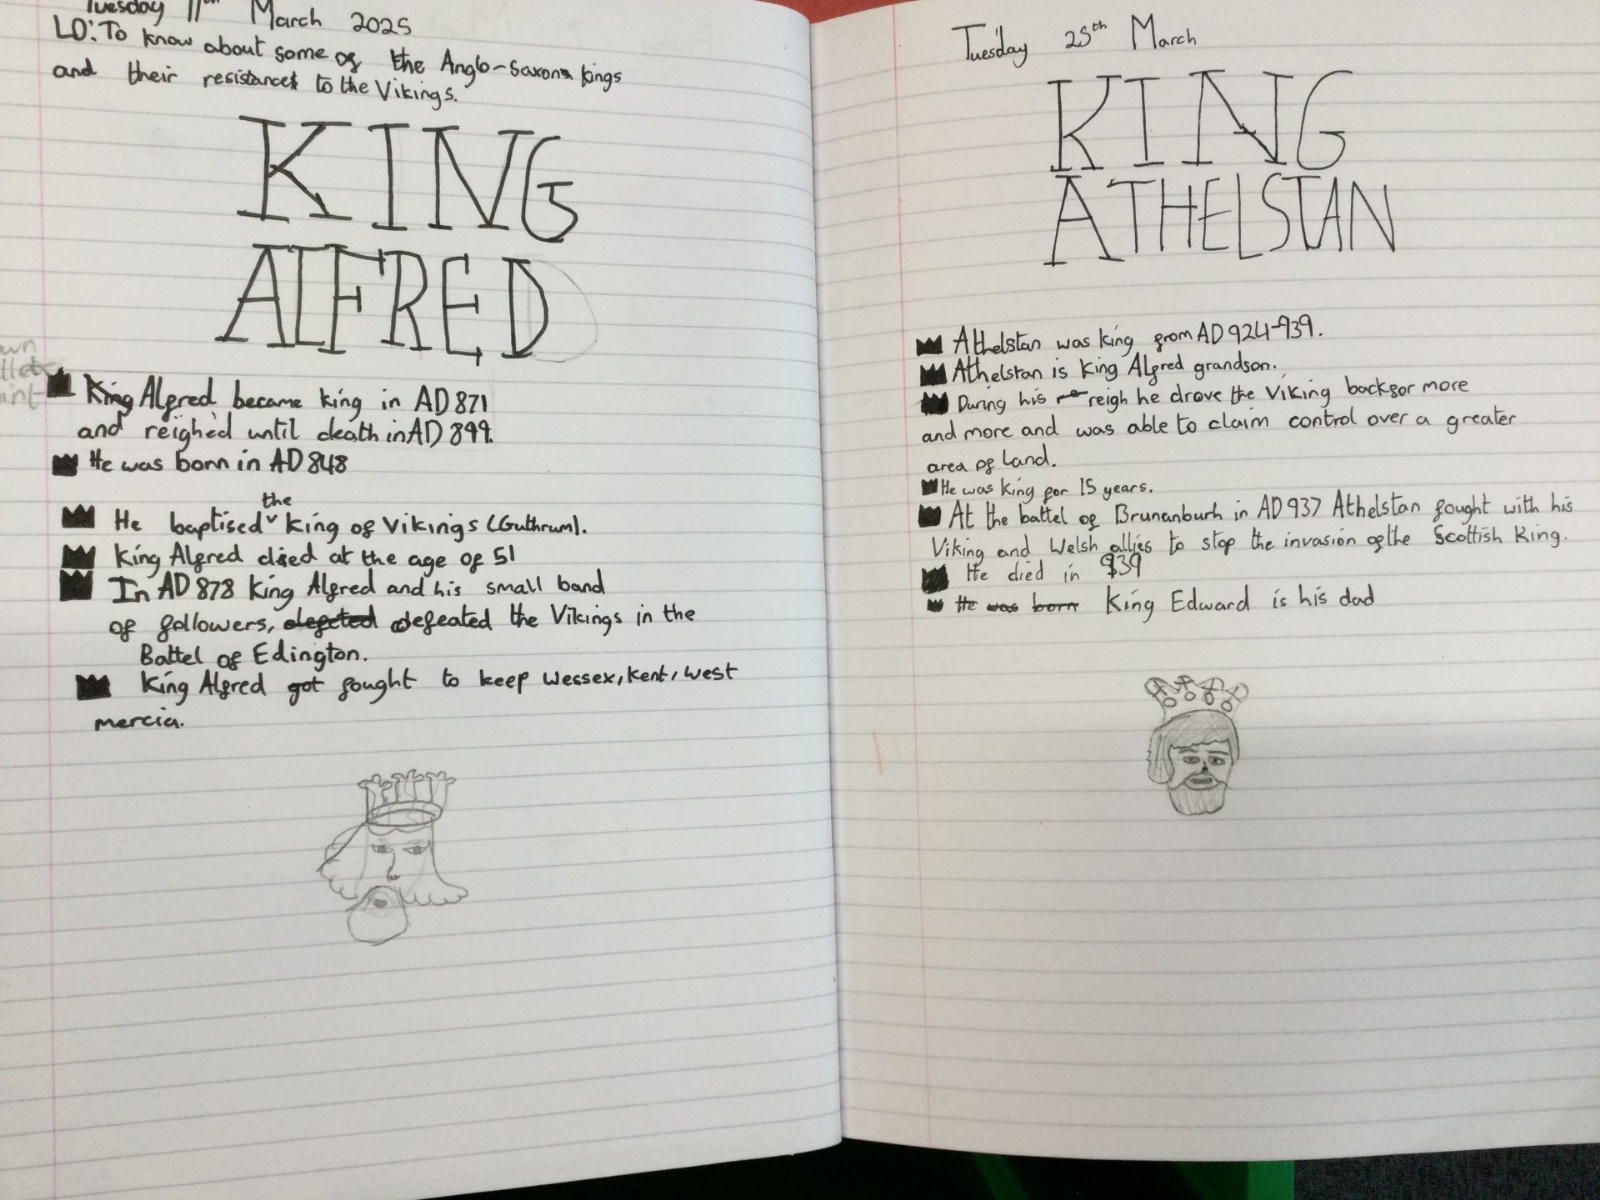 Tuesday 11th March 2025
LO: To know about some of the Anglo-Saxons kings
and their resistanct to the Vikings.
KING
ALFRED
King Alfred became king in AD 871
and reighed until death in AD 899.
He was born in AD 848
He baptised the king of Vikings (Guthrum).
King Alfred died at the age of 51
In AD 878 King Alfred and his small band
of followers, defeated the Vikings in the
Battel of Edington.
King Alfred got fought to keep Wessex, Kent, west
mercia.
Tuesday 25th March
KING
ATHELSTAN
Athelstan was king from AD 924-939.
Athelstan is King Alfred grandson.
During his reigh he drove the Viking backfor more
and more and was able to claim control over a greater
area of land.
He was king for 15 years.
At the battel of Brunanburh in AD 937 Athelstan fought with his
Viking and Welsh allies to stop the invasion of the Scottish King.
He died in 939
He was born King Edward is his dad